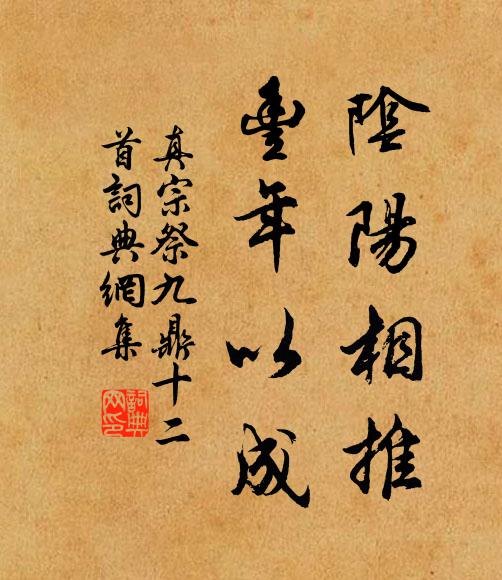 陰陽相推
豊年以成
真宗祭九鼎十二
首詞典網集
詞典
网印